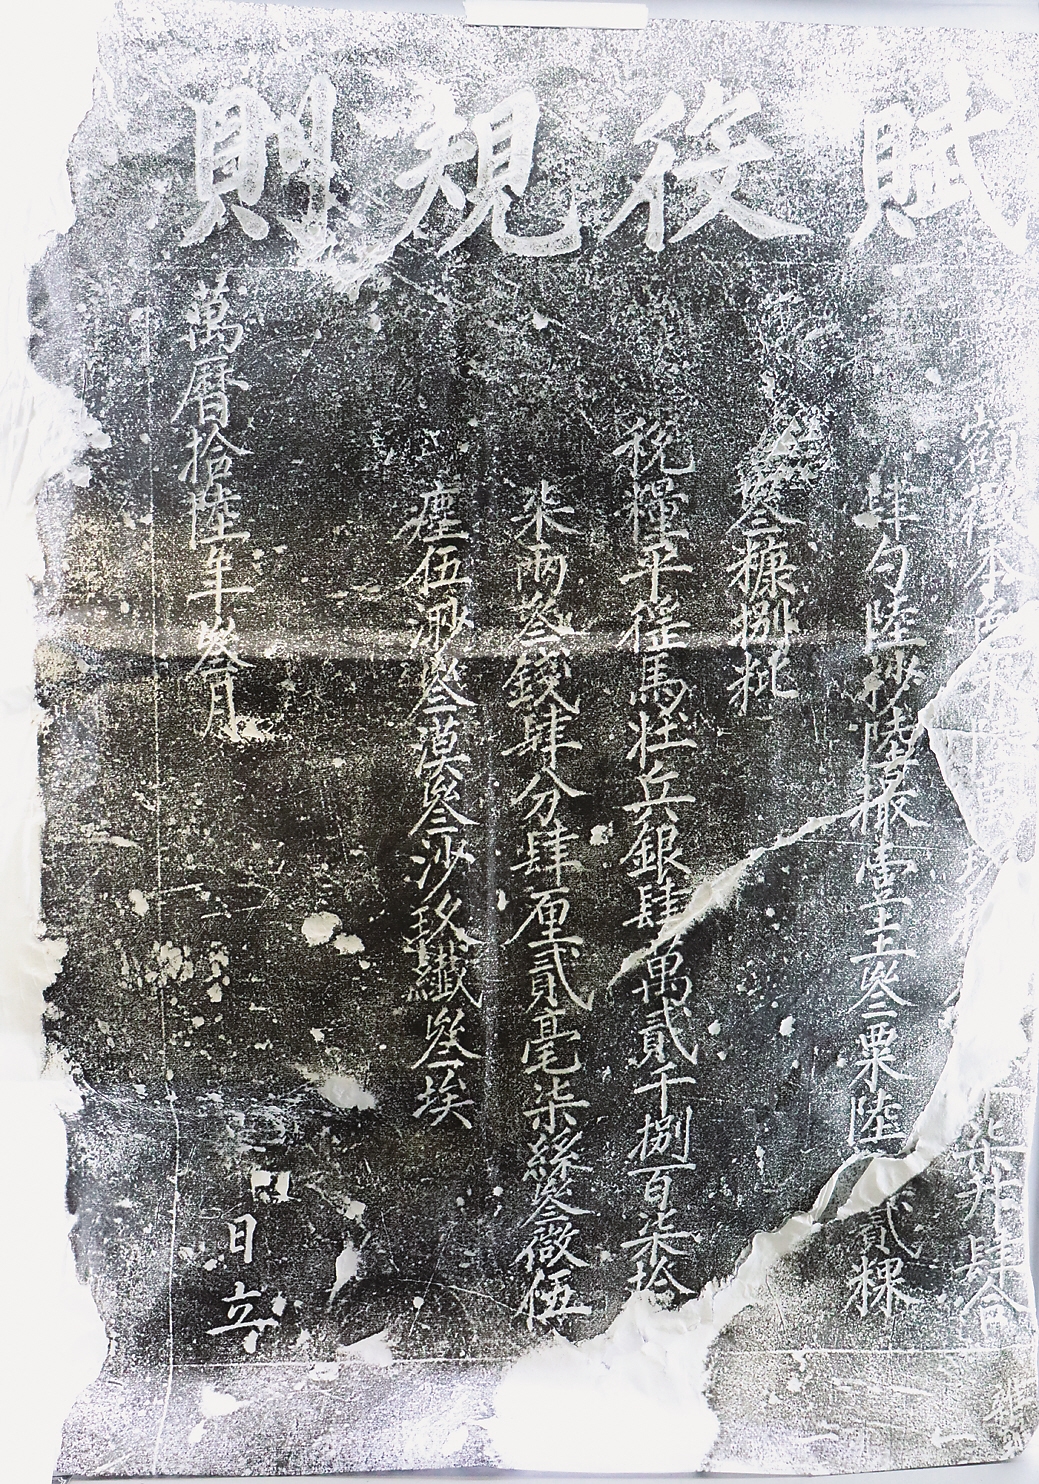 賦役規則
額徵本色米
柒升肆合
肆勺陸抄陸撮壹圭叁粟陸
貳粿
叁糠捌粃
稅糧平徭馬壯兵銀肆萬貳千捌百柒拾
柒兩叁錢肆分肆厘貳毫柒絲叁微伍
塵伍渺叁漠叁沙玖纖叁埃
萬曆拾陸年叁月
日立